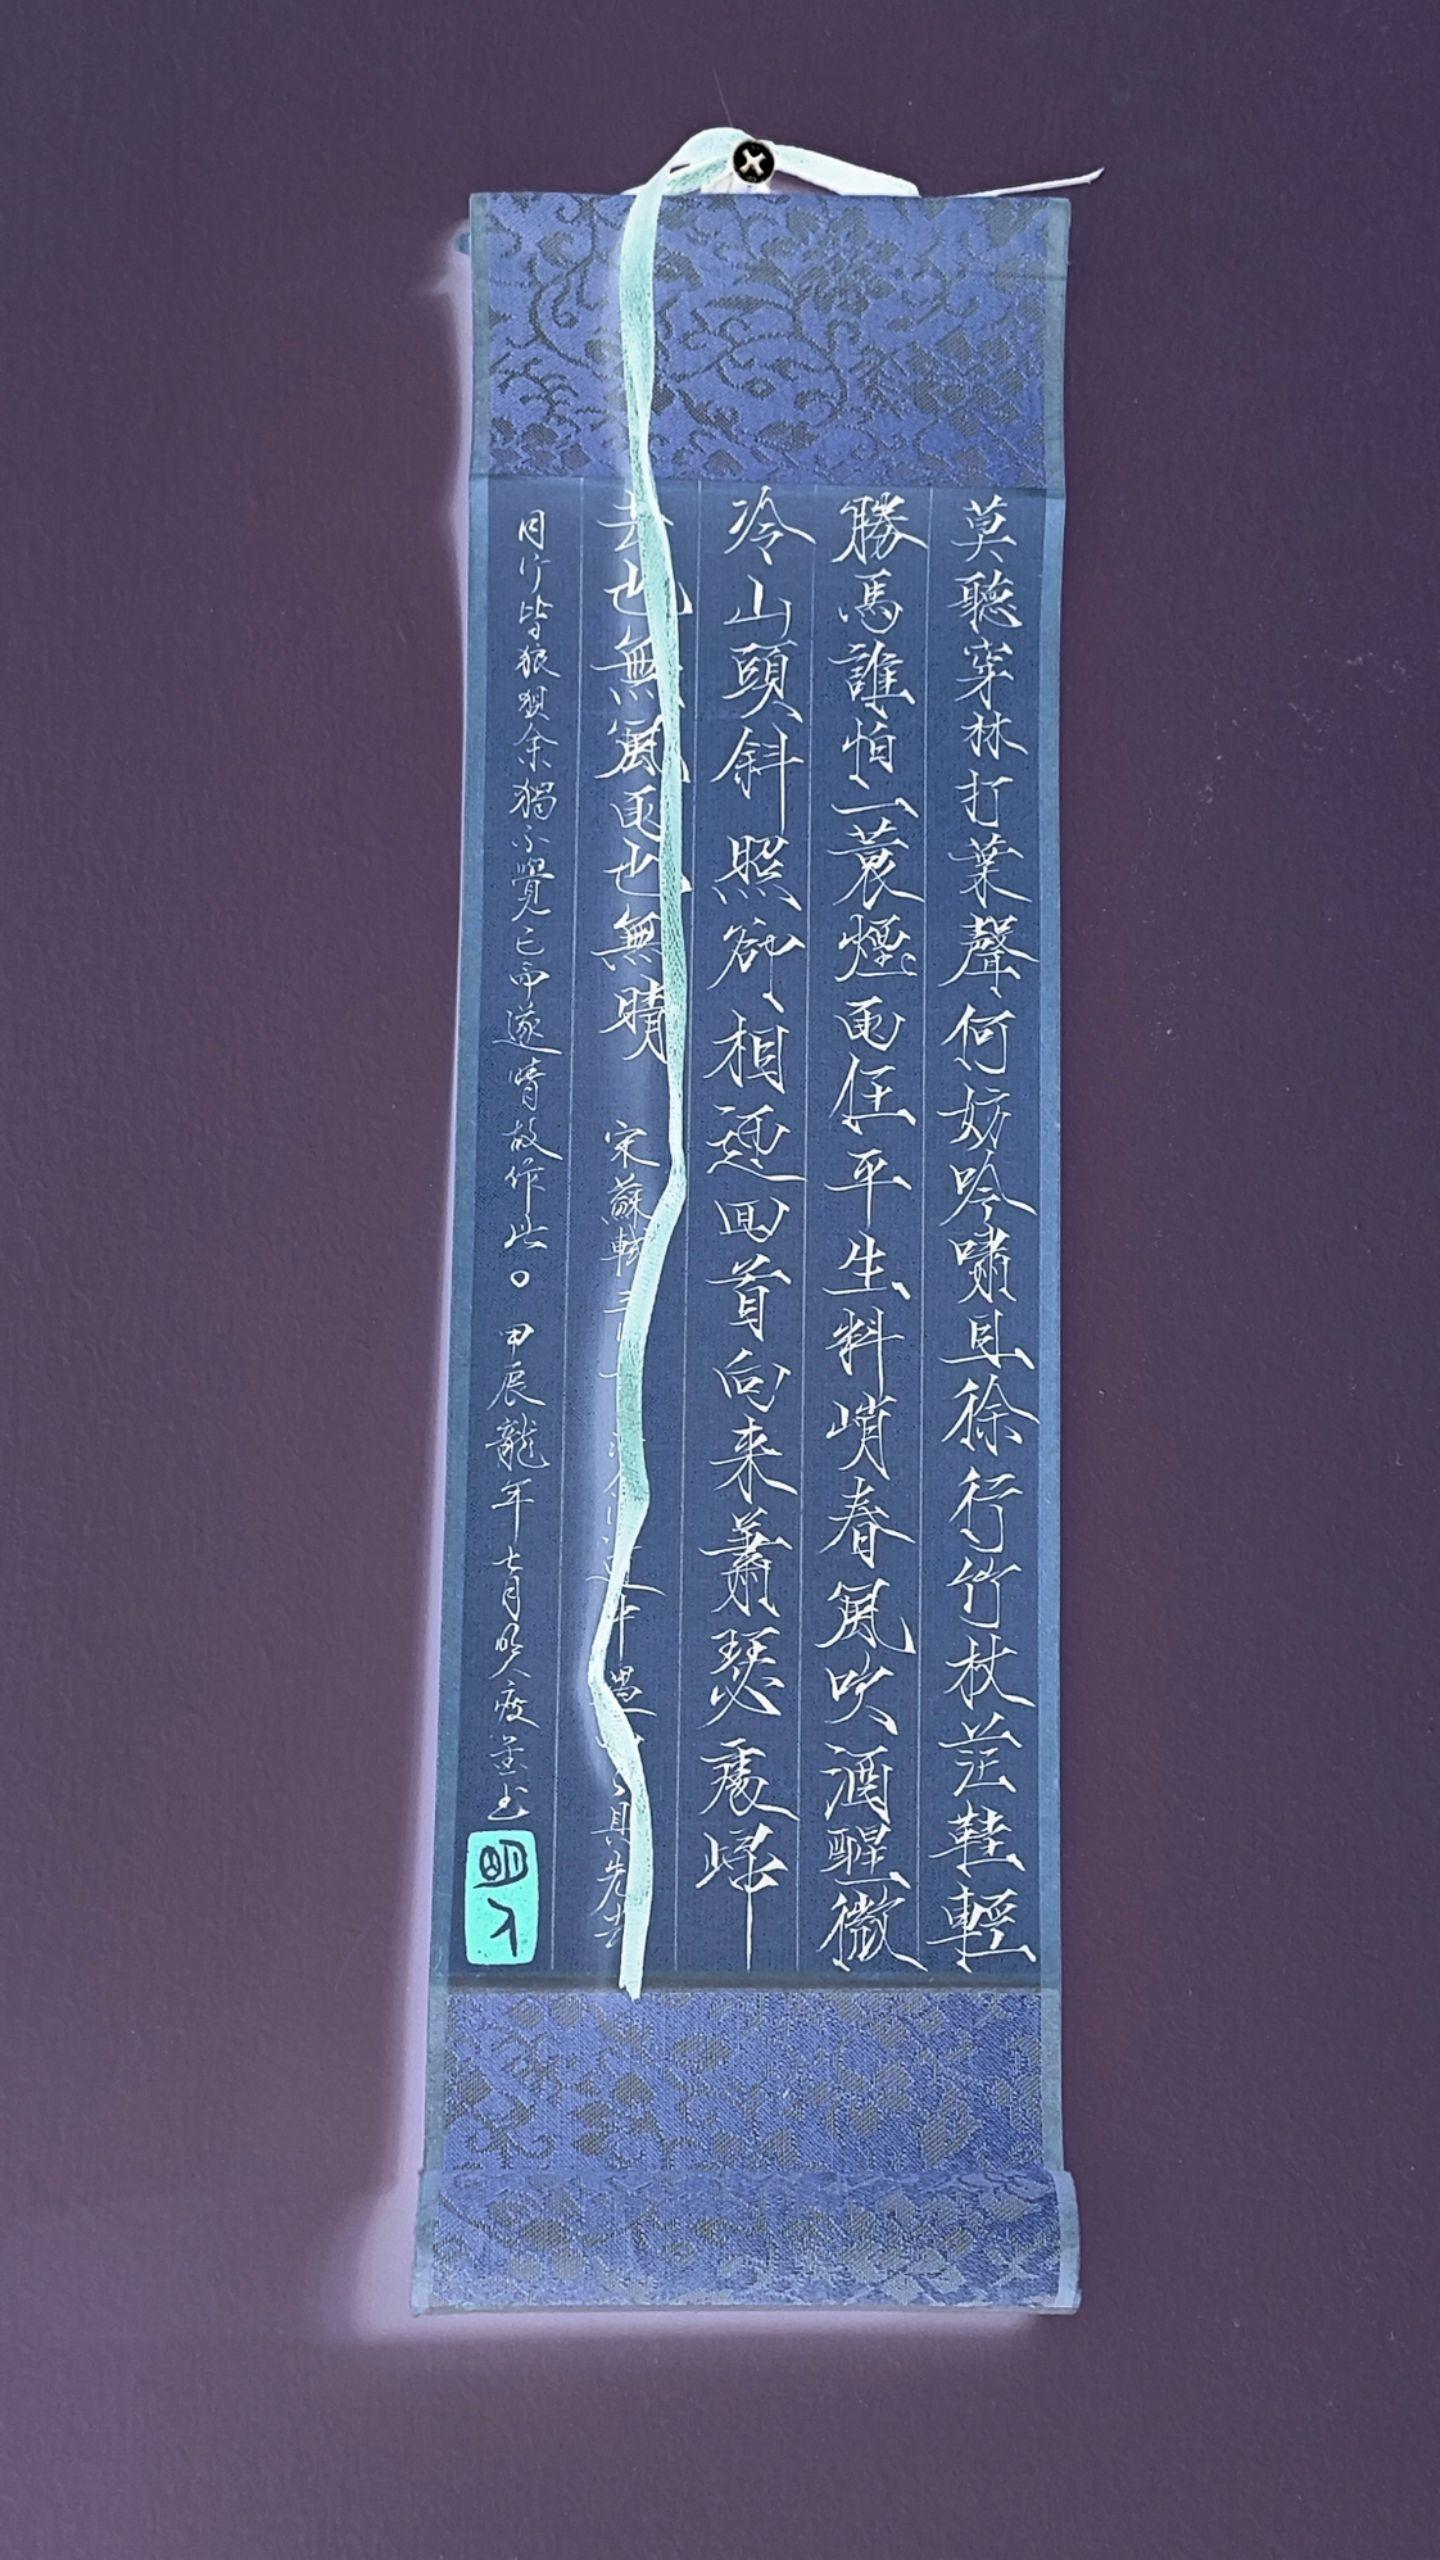 莫聽穿林打葉聲何妨吟嘯且徐行竹杖芒鞋輕
勝馬誰怕一蓑煙雨任平生料峭春風吹酒醒微
冷山頭斜照卻相迎回首向来蕭瑟處歸
去也無風雨也無晴 宋蘇軾 道中遇 具先去
同行皆狼狽余獨不覺已而遂晴故作此。甲辰龍年七月 並書